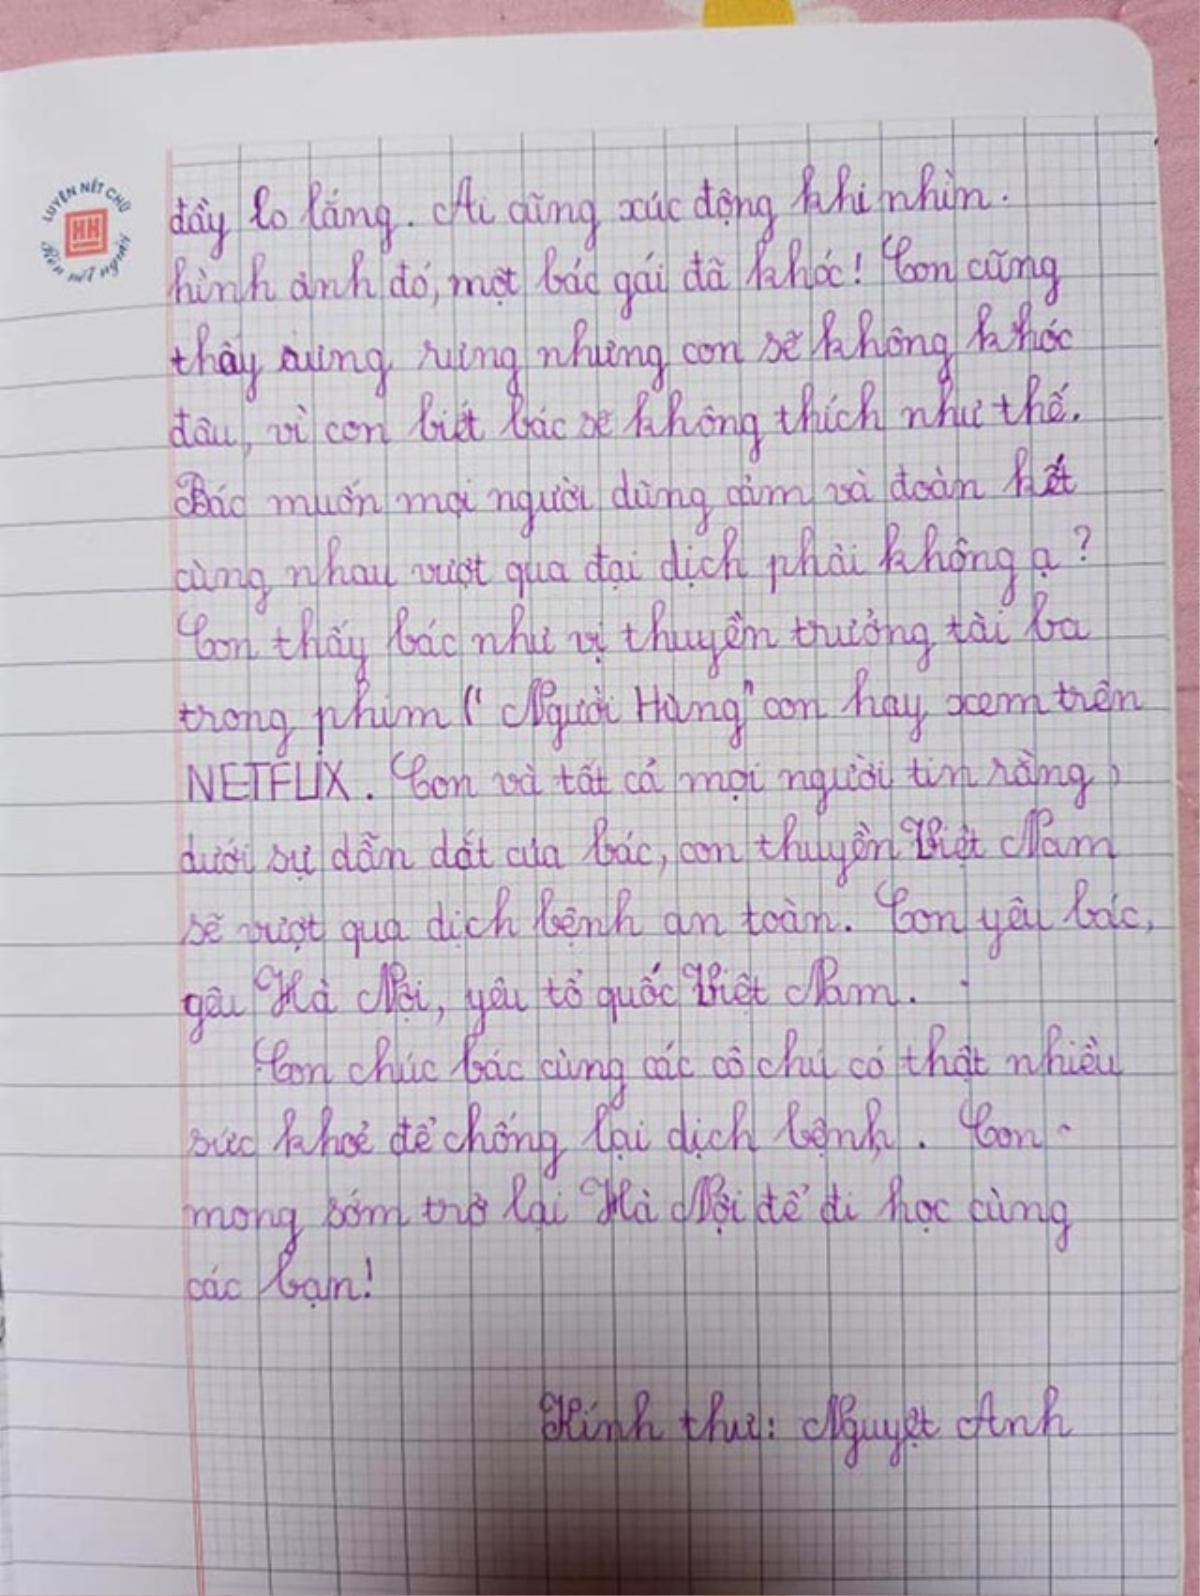 LUYỆN NÉT CHỮ
HH
Rèn nết người
đầy lo lắng. Ai cũng xúc động khi nhìn.
hình ảnh đó, một bác gái đã khóc! Con cũng
thấy rưng rưng nhưng con sẽ không khóc
đâu, vì con biết bác sẽ không thích như thế.
Bác muốn mọi người dũng cảm và đoàn kết
cùng nhau vượt qua đại dịch phải không ạ?
Con thấy bác như vị thuyền trưởng tài ba
trong phim "Người Hùng" con hay xem trên
NETFLIX. Con và tất cả mọi người tin rằng,
dưới sự dẫn dắt của bác, con thuyền Việt Nam
sẽ vượt qua dịch bệnh an toàn. Con yêu bác,
yêu Hà Nội, yêu tổ quốc Việt Nam.
Con chúc bác cùng các cô chú có thật nhiều
sức khoẻ để chống lại dịch bệnh. Con
mong sớm trở lại Hà Nội để đi học cùng
các bạn!
Kính thư: Nguyệt Anh